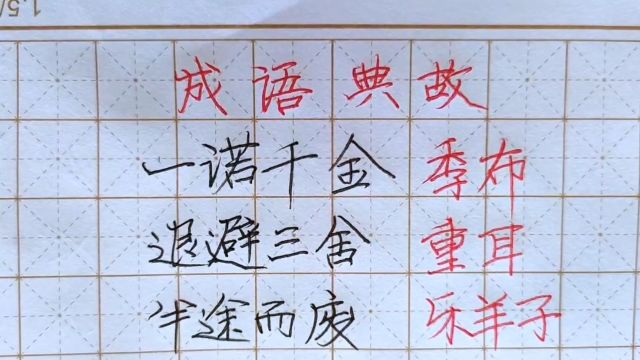 成语典故
一诺千金 季布
退避三舍 重耳
半途而废 乐羊子